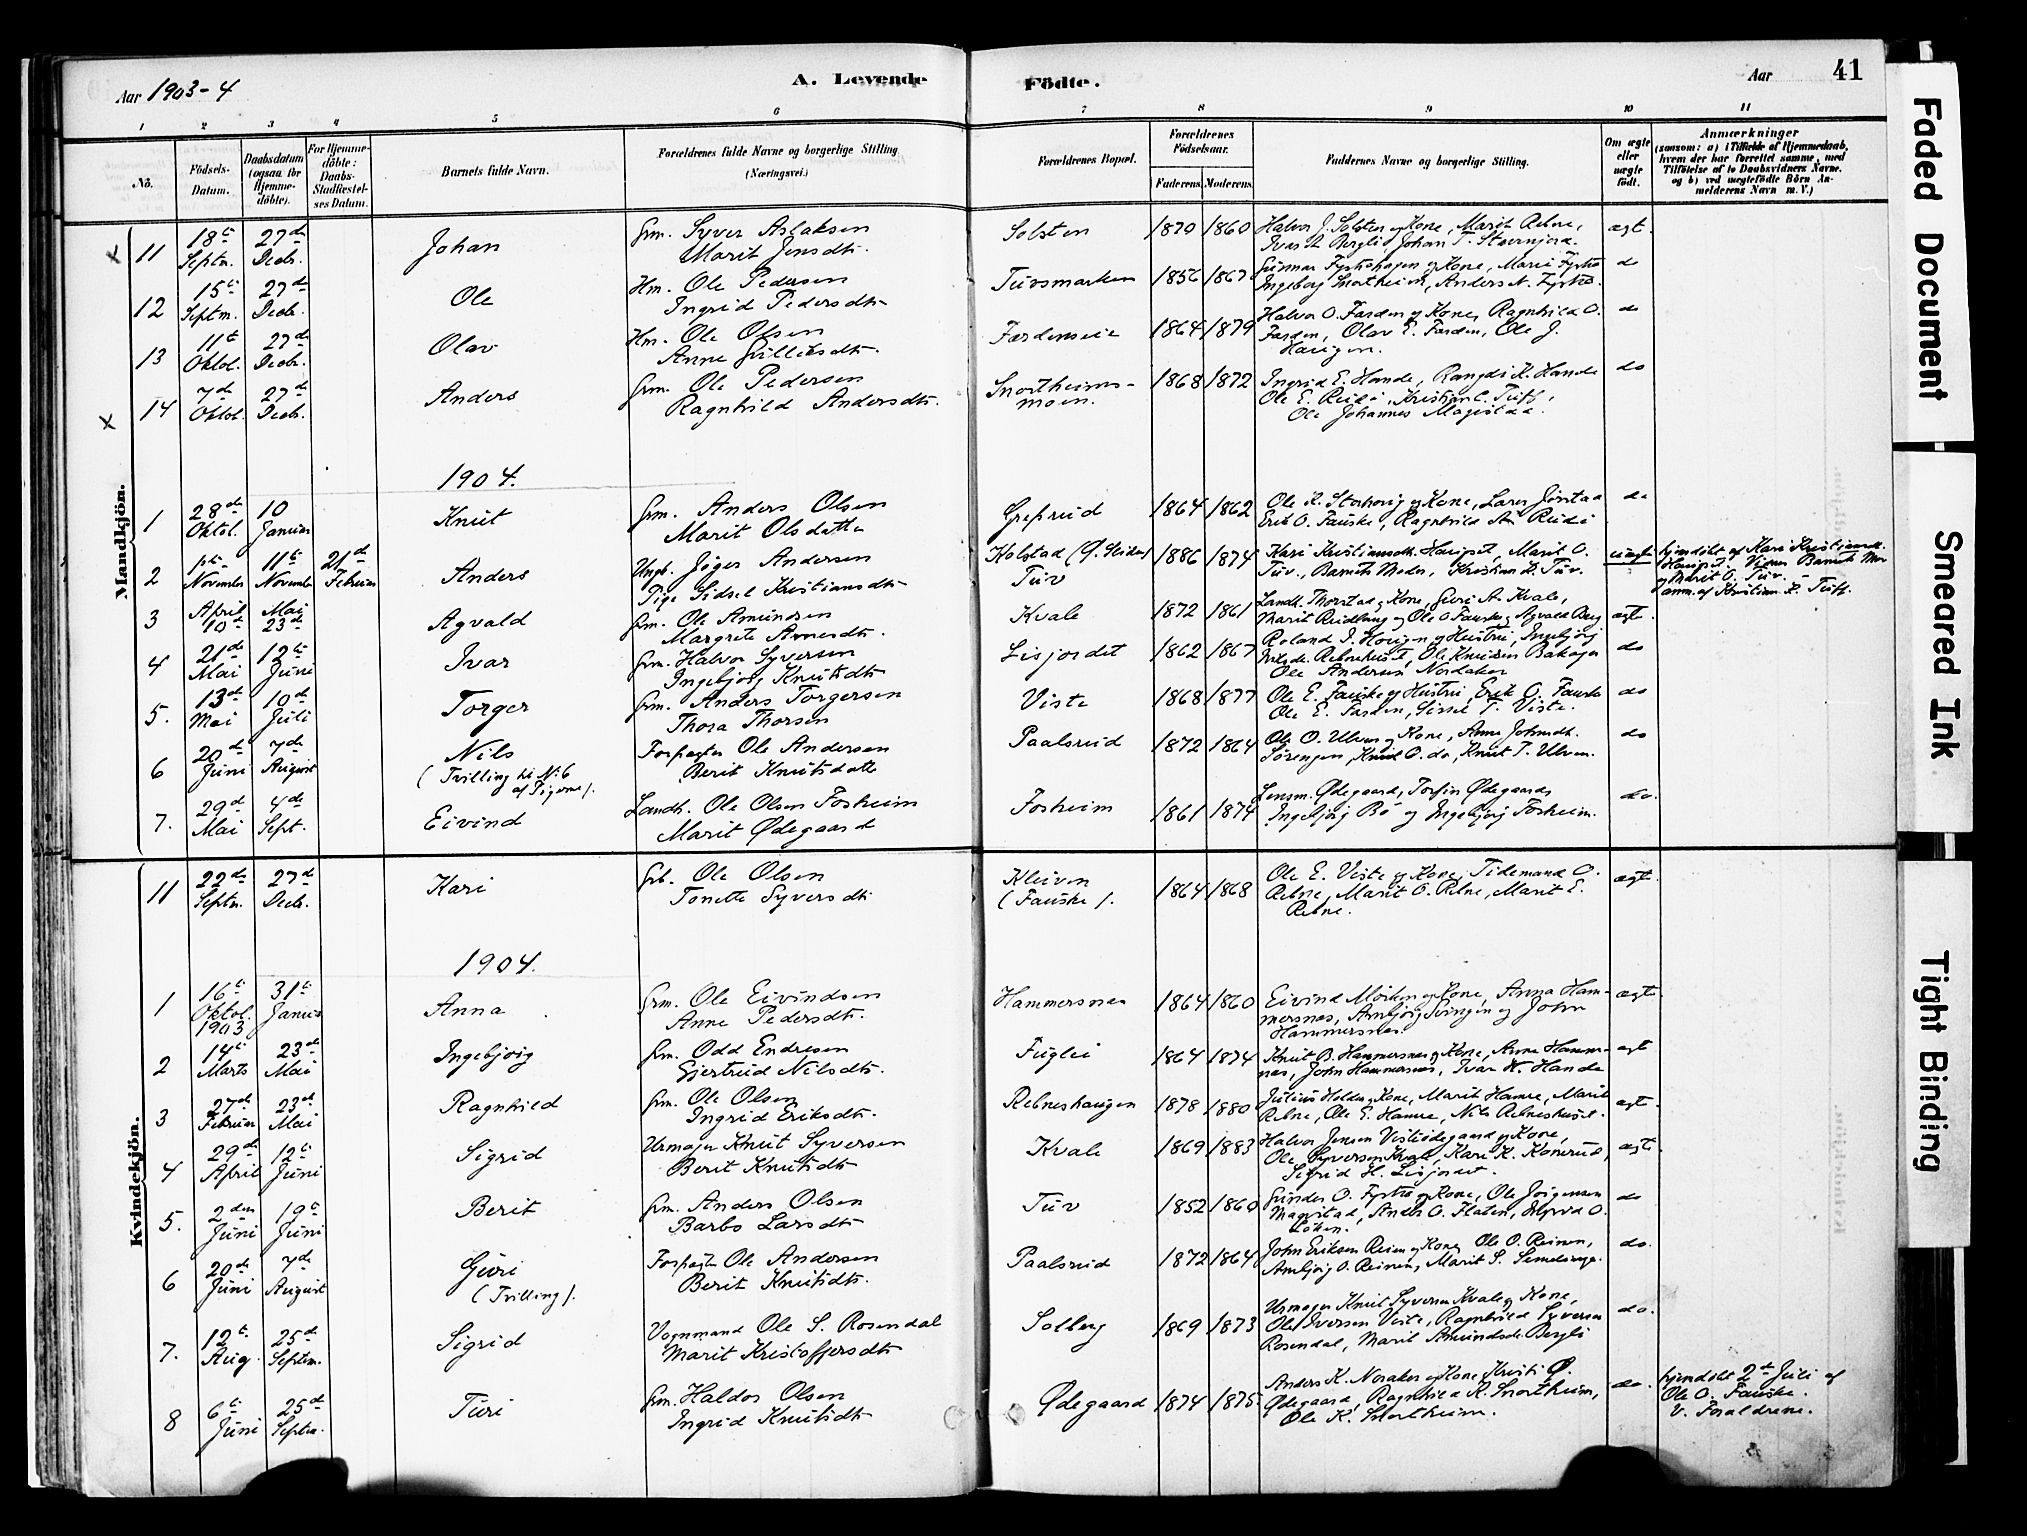 Aar 1903-4
A. Levende
Födte.
Aar
41
1 2 3 4 5 6 7 8 9 10 11
No.
Födsels-Datum.
Daabsdatum (ogsaa for Hjemme-döbte).
For Hjemme-döbte: Daabs-Stadfæstel-ses Datum.
Barnets fulde Navn.
Forældrenes fulde Navne og borgerlige Stilling. (Næringsvei.)
Forældrenes Bopæl.
Forældrenes Födselsaar.
Faderens. Moderens.
Faddernes Navne og borgerlige Stilling.
Om ægte eller uægte födt.
Anmærkninger
(saasom: a) i Tilfælde af Hjemmedaab, hvem der har forrettet samme, med Tilföielse af to Daabsvidners Navne, og b) ved uægtefödte Börn Anmelderens Navn m. V.)
Mandkjön.
11 18de Septm. 27de Decbr. Johan Grm. Syver Aslaksen Marit Jensdtr. Solsten 1870 1860 Halvor J. Solsten og Kone, Marit Rebne, Ivar A. Berglid, Johan T. ægt.
12 15de Septm. 27de Decbr. Ole Hm. Ole Pedersen Ingrid Pedersdtr. Tuvsmarken 1856 1867 Gunnar Fystrohagen og Kone, Marie Fystro Ingeborg Snortheim, Anders N. Fystro. do
13 11te Oktob. 27de Decbr. Olav Hm. Ole Olsen Anne Gulliksdtr. Fardenseie 1864 1879 Halvor O. Farden og Kone, Ragnhild O. Farden, Olav E. Farden, Ole J. Haugen. do
14 7de Oktob. 27de Decbr. Anders Grm. Ole Pedersen Ragnhild Andersdtr. Snortheims-moen. 1868 1872 Ingrid E. Hande, Rangdi K. Hande Ole E. Reidi, Kristian C. Tuff, Ole Johannes Magistad. do
1904.
1 28de Oktob. 10 Januar Knut Grm. Anders Olsen Marit Olsdatter Grefsrud 1864 1862 Ole K. Storhovig og Kone, Lars Jørstad Erik O. Fauske, Ragnhild A. Reidi do
2 1ste November 11te November 21de Februar Anders Ungk. Jøger Andersen Pige Sidsel Kristiansdtr. Kolstad (Ø. Slidre) Tuv 1886 1874 Kari Kristiansdtr. Hauget, Marit O. Tuv, Barnets Moder, Kristian K. Tuv. uægte hjemdöbt af Kari Kristiansdtr. Hauget. Vidner Barnets Mor og Marit O. Tuv. anm. af Kristian K. Tuff.
3 April 10de Mai 23de Agvald Grm. Ole Amundsen Margrete Arnesdtr. Kvale 1872 1861 Landh. Thorstad og Kone, Guri A. Kvale, Marit Reidlang og Ole O. Fauske, Agvald Berg ægte.
4 21de Mai 12te Juni Ivar Grm. Halvor Syversen Ingebjørg Knutsdtr. Lisjordet 1862 1867 Roland I. Hougen og Hustru, Ingebjørg Rebnehuset, Ole Knudsen Bakhagen Ole Andersen Nordaker do
5. 13de Mai 10de Juli Torger Grm. Anders Torgersen Thora Thorsen Viste 1868 1877 Ole E. Fauske og Hustru, Erik O. Fauske Ole E. Farden, Sissel T. Viste. do
6 20de Juni 7de August Nils (Tvilling til N: 6 af Pigerne). Forpagter Ole Andersen Berit Knutsdatter Paalsrud 1872 1864 Ole O. Ulven og Kone, Anne Johnsdtr. Sørengen, Knut O. do, Knut T. Ulven. do
7. 29de Mai 4de Sept. Eivind Landh. Ole Olsen Fosheim Marit Ødegaard Fosheim 1861 1874 Lensm. Ødegaard, Torfin Ødegaard, Ingebjørg Bø og Ingebjørg Fosheim. do.
Kvindekjön.
11 22de Septm. 27de Decb. Kari Grb. Ole Olsen Tonette Syversdtr. Kleiven (Fauske). 1864 1868 Ole E. Viste og Kone, Tidemand O. Rebne, Marit O. Rebne, Marit E. Rebne. ægt.
1904.
1 16de Oktob. 1903 31te Januar Anna Grm. Ole Eivindsen Anne Pedersdtr. Hammersnes 1864 1860 Eivind Moren og Kone, Anna Hammersnes, Arnbjørg Svingen og John Hammersnes. ægte
2 14de Marts 23de Mai Ingebjörg Grm. Odd Endresen Gjertrud Nilsdtr. Fuglei 1864 1874 Knut B. Hammersnes og Kone, Anne Hammersnes, John Hammersnes, Ivar K. Hande ægt
3 27de Februar 23de Mai Ragnhild Grm. Ole Olsen Ingrid Eriksdtr. Rebneshaugen 1878 1880 Julius Holden og Kone, Marit Hamre, Marit Rebne, Ole E. Hamre, Nils Rebneshuset. ægt.
4 29de April 12te Juni Sigrid Urmager Knut Syversen Berit Knutsdtr. Kvale 1869 1883 Halvor Jensen Visteødegaard og Kone, Ole Syversen Kvale, Kari K. Konerud, Sigrid H. Lisjordet. ægt.
5. 2den Juni 19de Juni Berit Grm. Anders Olsen Barbo Larsdtr. Tuv 1852 1860 Gunder O. Fystro og Kone, Ole Jørgensen Magistad, Anders O. Flaten, O. Løken. do
6 20de Juni 7de August Guri (Tvilling). Forpagter Ole Andersen Berit Knutsdtr. Paalsrud 1872 1864 John Eriksen Reien og Kone, Ole O. Reinen, Arnbjørg O. Reinen, Marit S. do.
7. 12te Aug. 25de Septem. Sigrid Vognmand Ole S. Rosendal Marit Kristoffersdtr. Solberg 1869 1873 Urmager Knut Syversen Kvale og Kone, Ole Iversen Viste, Ragnhild Syversen Rosendal, Marit Amundsdtr. Bergli do.
8 6te Juni 25de Septem. Turi Grm. Haldor Olsen Ingrid Knutsdtr. Ødegaard 1874 1875 Anders K. Noraker og Kone, Kristi Ø. Ødegaard, Ragnhild K. Snortheim, Ole K. Snortheim. do. hjemdöbt 2de Juli af Ole O. Fauske. V. Forældrene.
Faded Document
Smeared Ink
Tight Binding